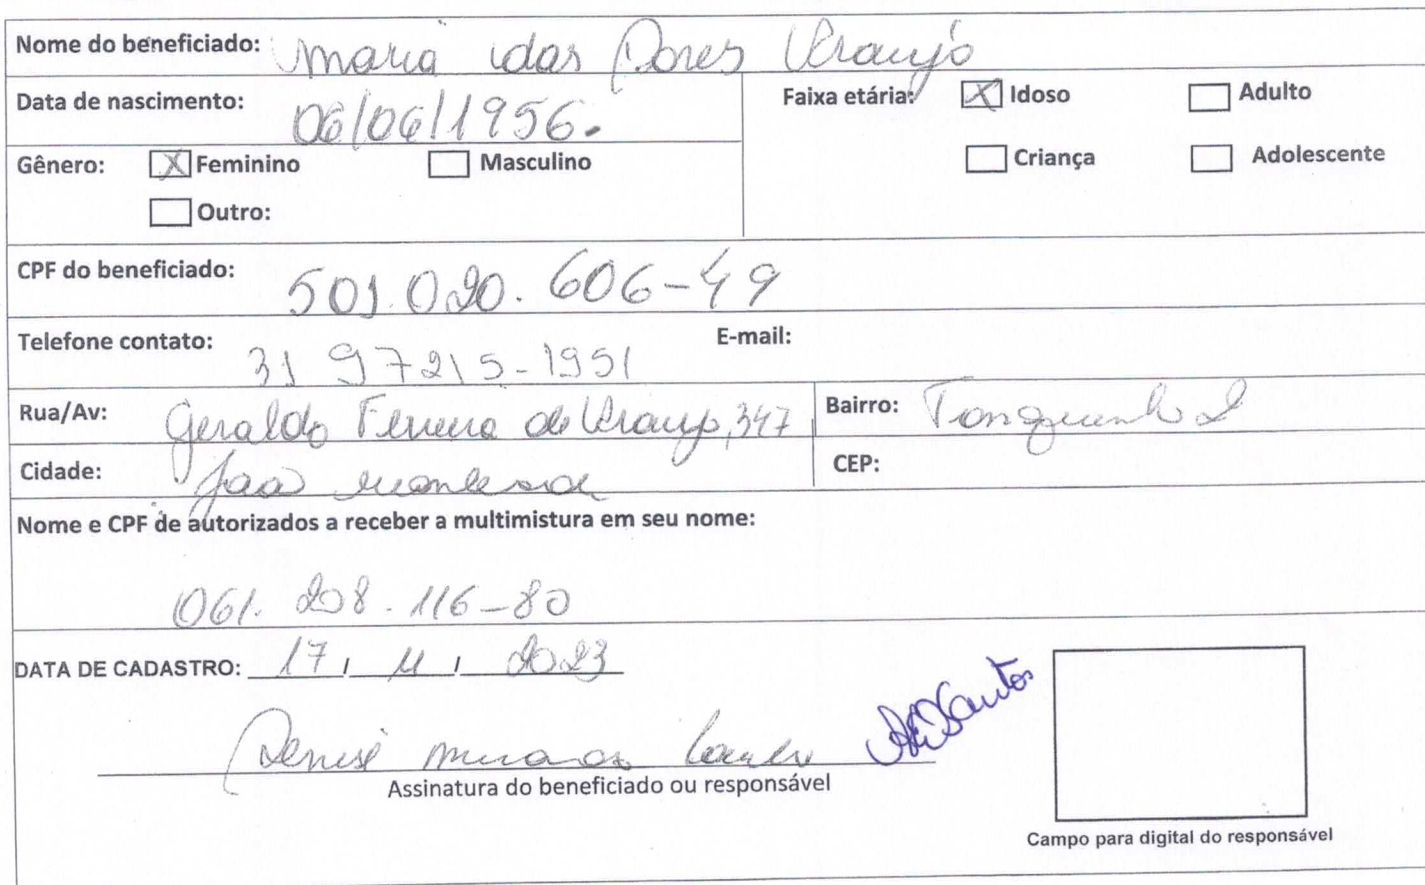 Nome do beneficiado: Maria das Dores Araujo
Data de nascimento: 06/06/1956.
Faixa etária: [X] Idoso [ ] Adulto
Gênero: [X] Feminino [ ] Masculino
[ ] Criança [ ] Adolescente
[ ] Outro:
CPF do beneficiado: 501.020.606-49
Telefone contato: 31 97215-1951 E-mail:
Rua/Av: Geraldo Ferreira de Araujo, 347 Bairro:
Cidade: CEP:
Nome e CPF de autorizados a receber a multimistura em seu nome:
061.208.116-80
DATA DE CADASTRO: 17 / 11 / 2023
Denise
Santos
Assinatura do beneficiado ou responsável
Campo para digital do responsável